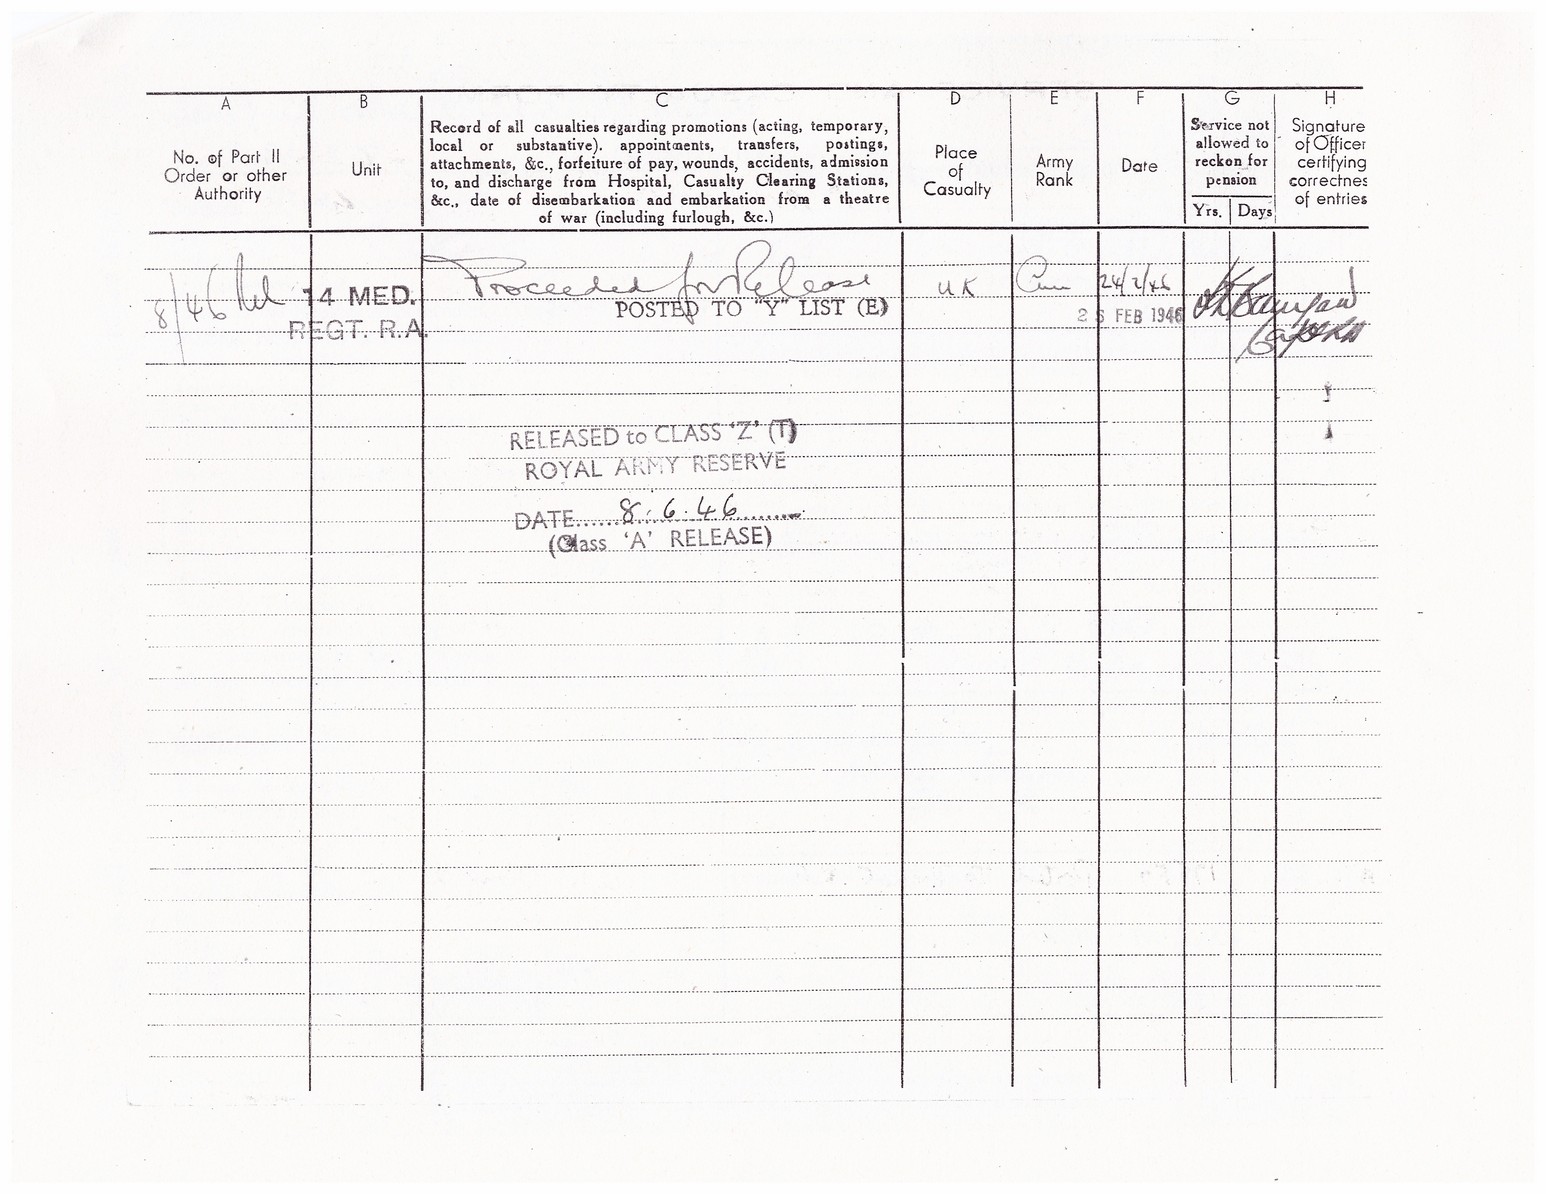 A B C D E F G H
No. of Part II
Order or other
Authority
Unit
Record of all casualties regarding promotions (acting, temporary,
local or substantive). appointments, transfers, postings,
attachments, &c., forfeiture of pay, wounds, accidents, admission
to, and discharge from Hospital, Casualty Clearing Stations,
&c., date of disembarkation and embarkation from a theatre
of war (including furlough, &c.)
Place
of
Casualty
Army
Rank
Date
Service not
allowed to
reckon for
pension
Yrs. Days
Signature
of Officer
certifying
correctnes
of entries
8/46 Rel
14 MED.
REGT. R.A.
Proceeded for Release
POSTED TO "Y" LIST (E)
UK
24/2/46
26 FEB 1946
RELEASED to CLASS 'Z' (T)
ROYAL ARMY RESERVE
DATE......8.6.46.........
(Class 'A' RELEASE)